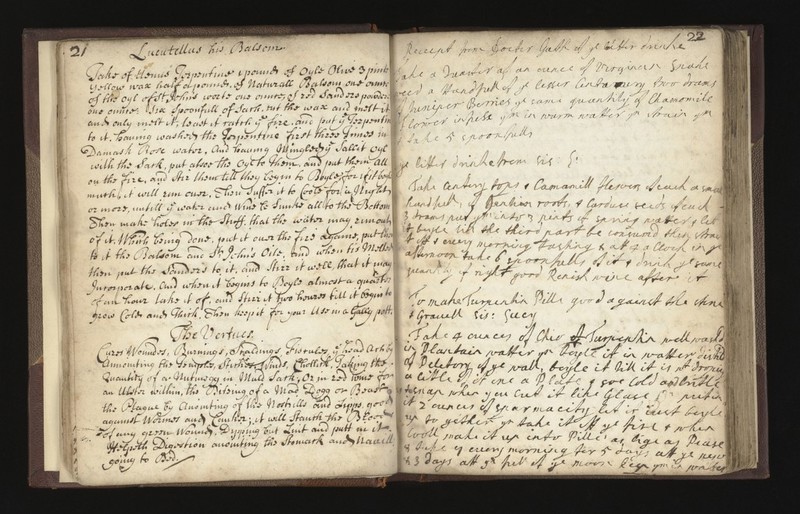 21
Lucutellus his Balsom
Take of Venus Terpentine 1 pound, of Oyle Olive 3 pints
Yellow wax half a pound, of Naturall Balsom one ounce
of the Oyl of St Johns worte one ounce, of red Sanders powder
one ounce, Six Spoonfull of Sack, cut the wax and melt it
and only melt it, least it catch ye fire, and put ye Terpentin
to it, having washed the Terpentine first three times in
Damask Rose water, And having Mingled ye Sallet Oyl
with the Sack, put alsoe the Oyl to them, and put them All
on the fire, and Stir them till they begin to Boyle, for if it boyle
much, it will run over, Then Suffer it to Coole for a Night
or more, untill ye water and Wine be Sunke all to the Bottom
Then make holes in the Stuff, that the water may run out
of it, Which being done, put it over the fire againe, put
to it the Balsom and St Johns Oile, and when tis Melted
then put the Sanders to it, and Stirr it well, that it may
Incorporate, And when it begins to Boyle almost a quarter
of an hour take it of, and Stirr it two houres till it begin to
grow Cold and Thick. Then keep it for your Use in a Gally pott.
The Vertues
Cures Wounds, Burnings, Scaldings, ye head Ach by
Annointing the Temples, Stiches, Winds, Chollick, Taking the
Quantity of a Nutmegg in Mull Sack, Or in red Wine for
an Ulster within, the Biteing of a Mad Dogg or Beast
the Plague by Anointing of the Nostrills and Lipps, good
against Wormes and Canker, it will Staunch the Bloud
of any green Wound, Dipping but Lint and putt in it
Helpeth Digestion anointing the Stomack and Navell
going to Bed
22
Receipt from Docter Gath of ye bitter drinke
Take a Quarter of an ounce of Virginea Snake
reed a Handfull of ye lesser Centaurey two drams
of Juniper Berries ye same quantity of Chamomile
flower infuse ym in warm watter yn strain ym
take 5 spoonfulls
ye bitter drinke from Sis: E:
Take Centory tops & Camamill flowers of each a small
handfull, of Jentian roots, & Carduus seeds of each
3 drams put ym into 2 pints of spring watter & let
it boyle till the third part be consumed then strain
it off & every morning fasting & att 4 a clock in ye
afternoon take 6 spoonfulls of it & drink ye same
quantity of right good Renish wine after it
To make Turpentin Pills good against the stone
& Gravell Sis: Guey
Take 4 ounces of Chio Turpentin well washd
in Plantain watter yn boyle it in watter distild
of Pelletory of ye wall, boyle it till it is
a little of it one a Plate & soe Cold as brittle
& snap when you Cut it like Glass yn put in
it 2 ounces of sparmacity let it Just boyle
up to gether yn take it off ye fire & when
Coole make it up into Pills as bige as Pease
& take of every morning for 5 days att ye new
& 3 days att ye full of ye moon